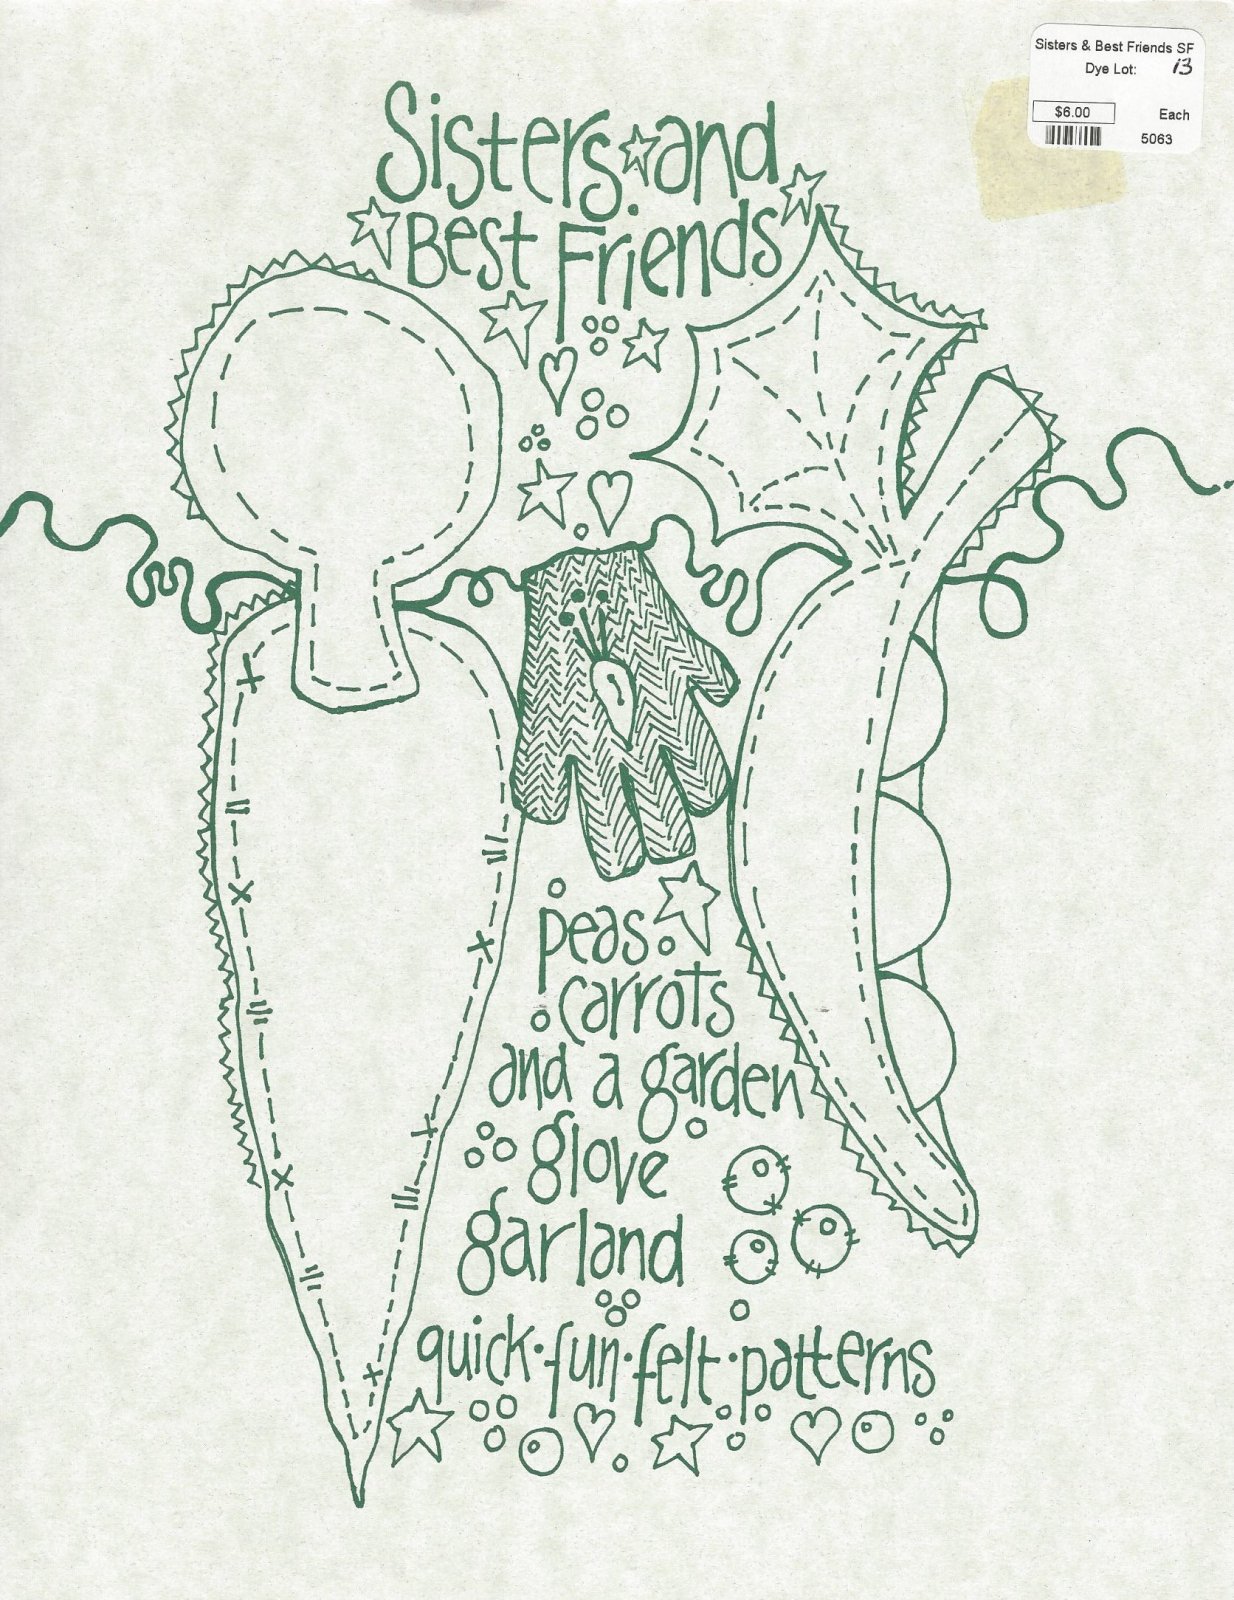 Sisters & Best Friends SF
Dye Lot: 13
$6.00 Each
5063
Sisters and
Best Friends
peas
carrots
and a garden
glove
garland
quick·fun·felt·patterns